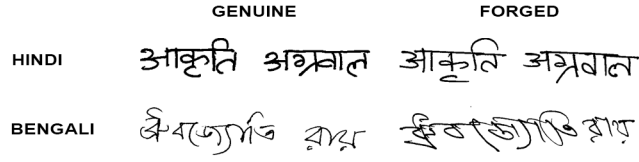 GENUINE FORGED
HINDI आकृति अग्रवाल आकृति अग्रवाल
BENGALI ধ্রুবজ্যোতি রায় ধ্রুবজ্যোতি রায়